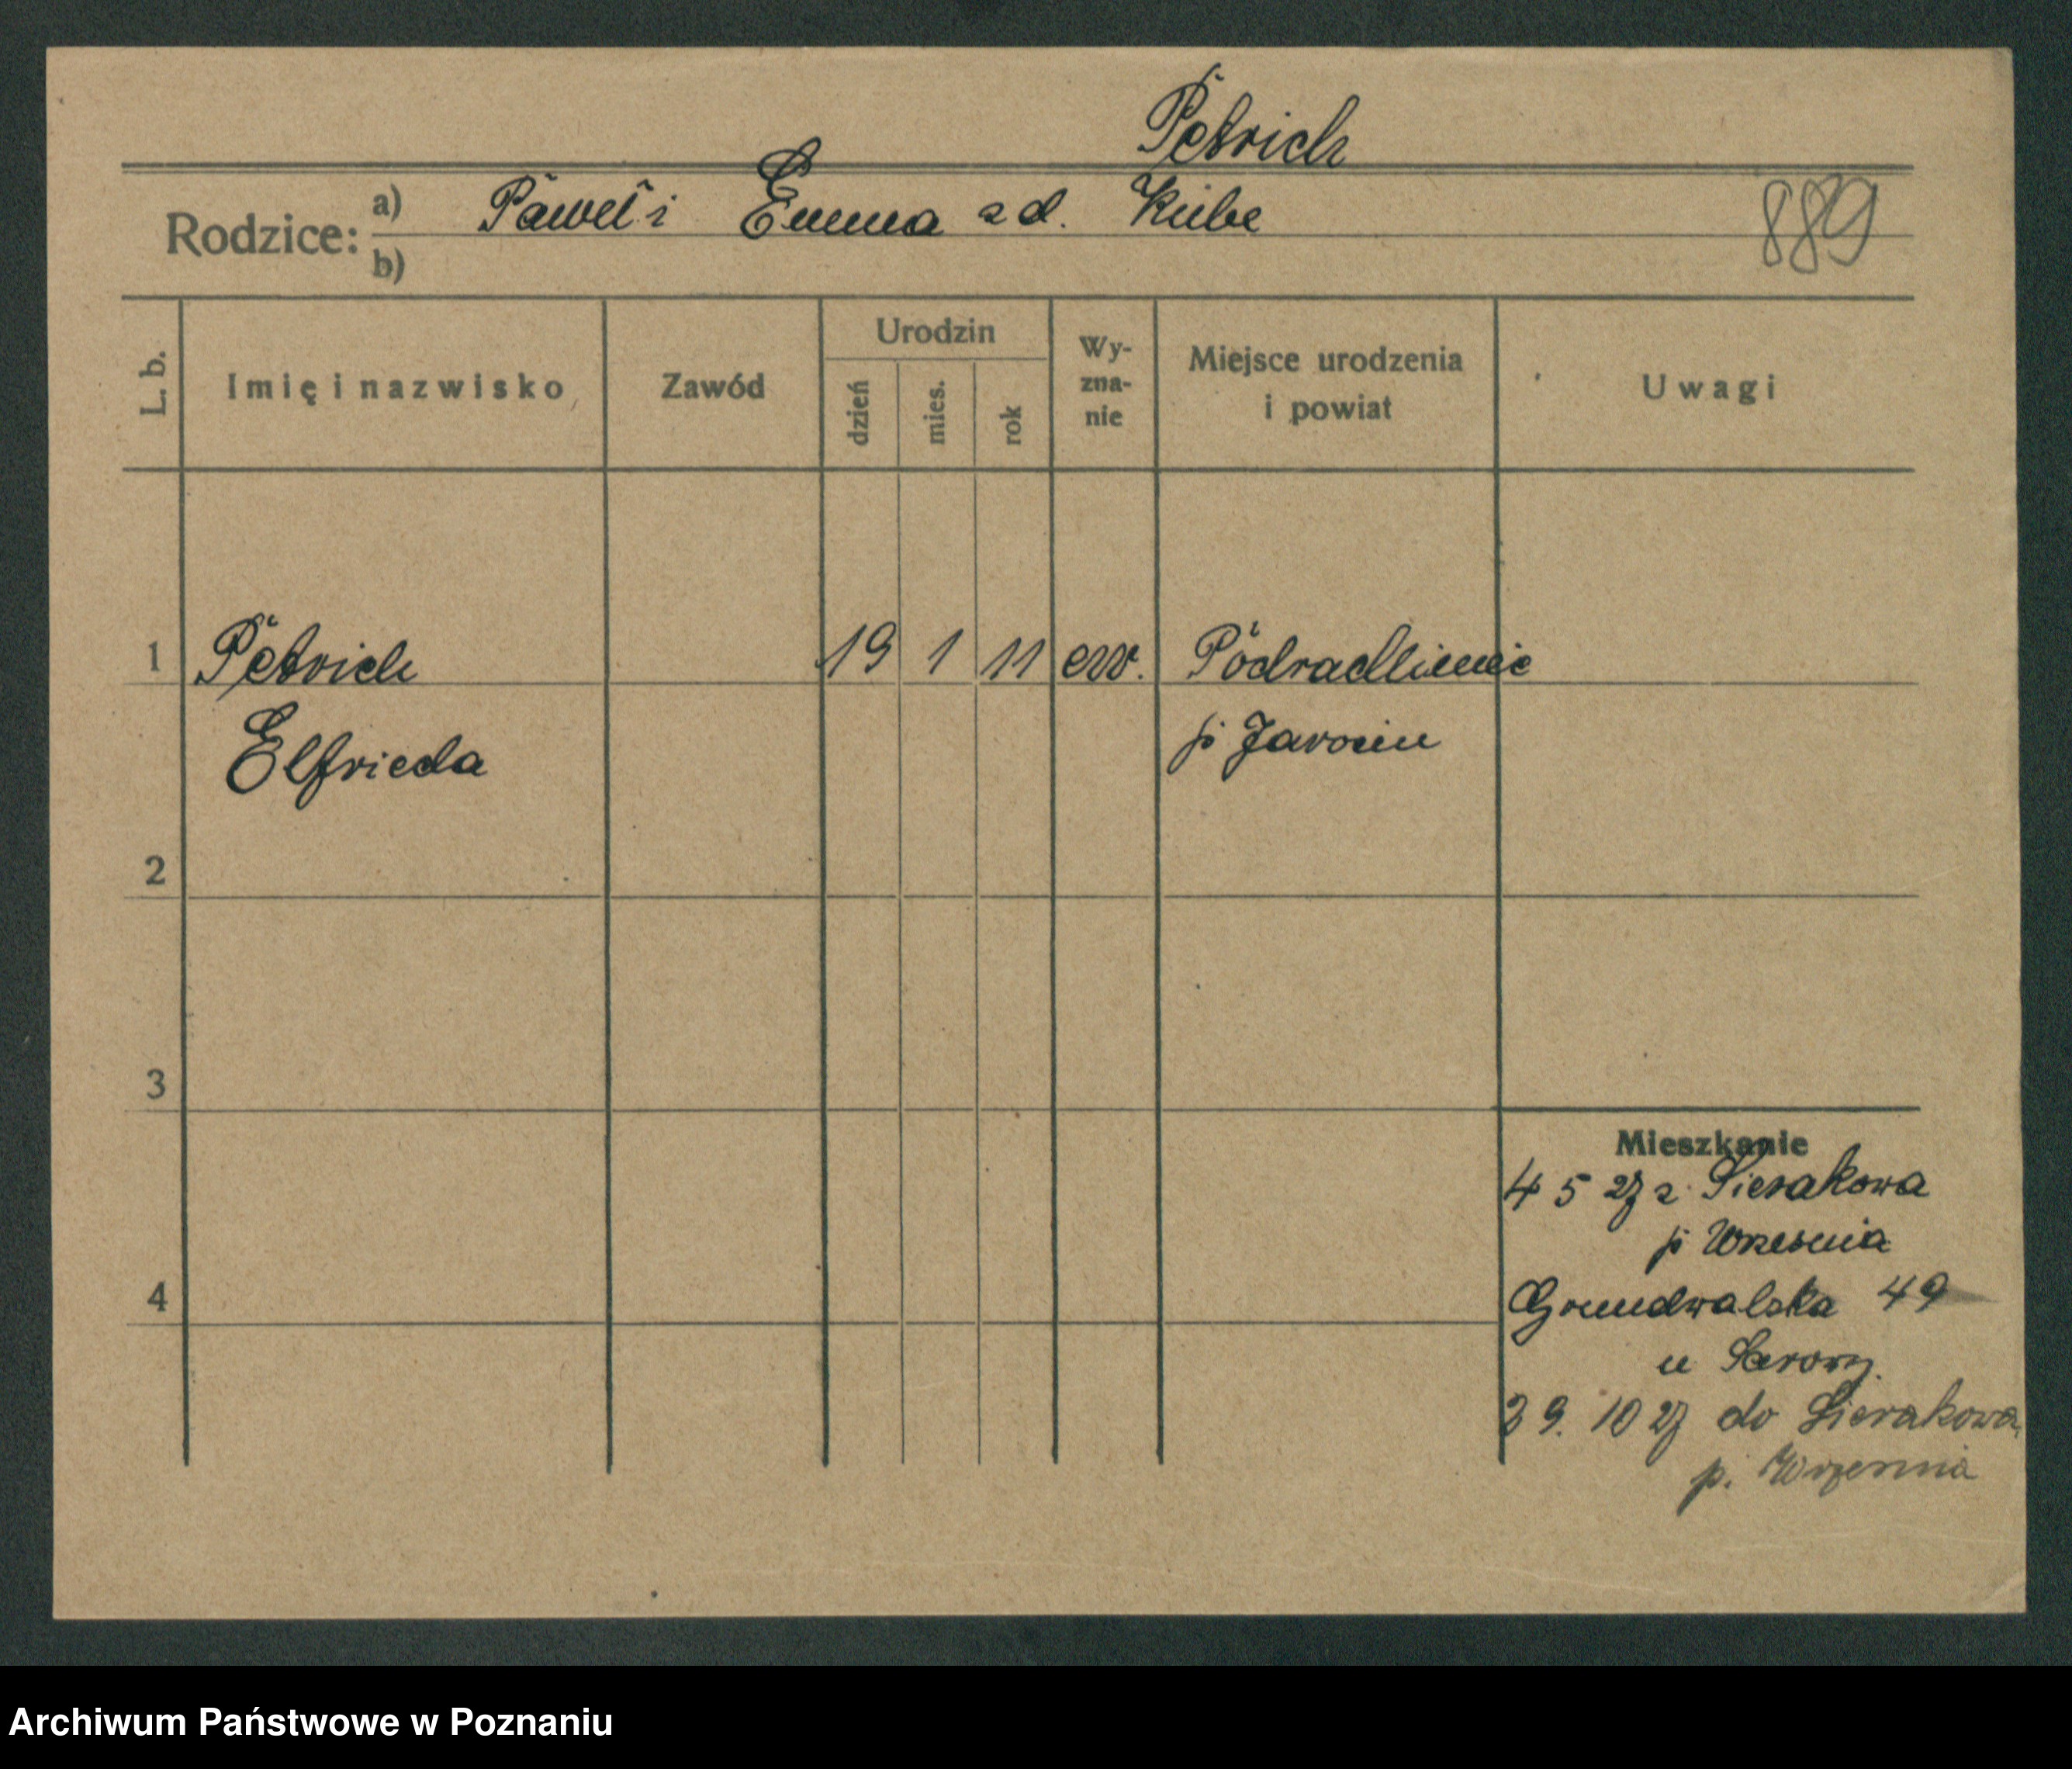 Petrich
Rodzice: a) Paweł i Emma z d. Kube
b)
889
L. b.
Imię i nazwisko
Zawód
Urodzin
dzień
mies.
rok
Wy-
zna-
nie
Miejsce urodzenia
i powiat
Uwagi
1 Petrich 19 1 11 ew. Podradlinie
Elfrieda p Jarocin
2
3
4
Mieszkanie
4 5 27 z Sierakowa
p Wrzesnia
Grundwalska 49
u
29. 10 27 do Sierakowa
p. Wrzesnia
Archiwum Państwowe w Poznaniu